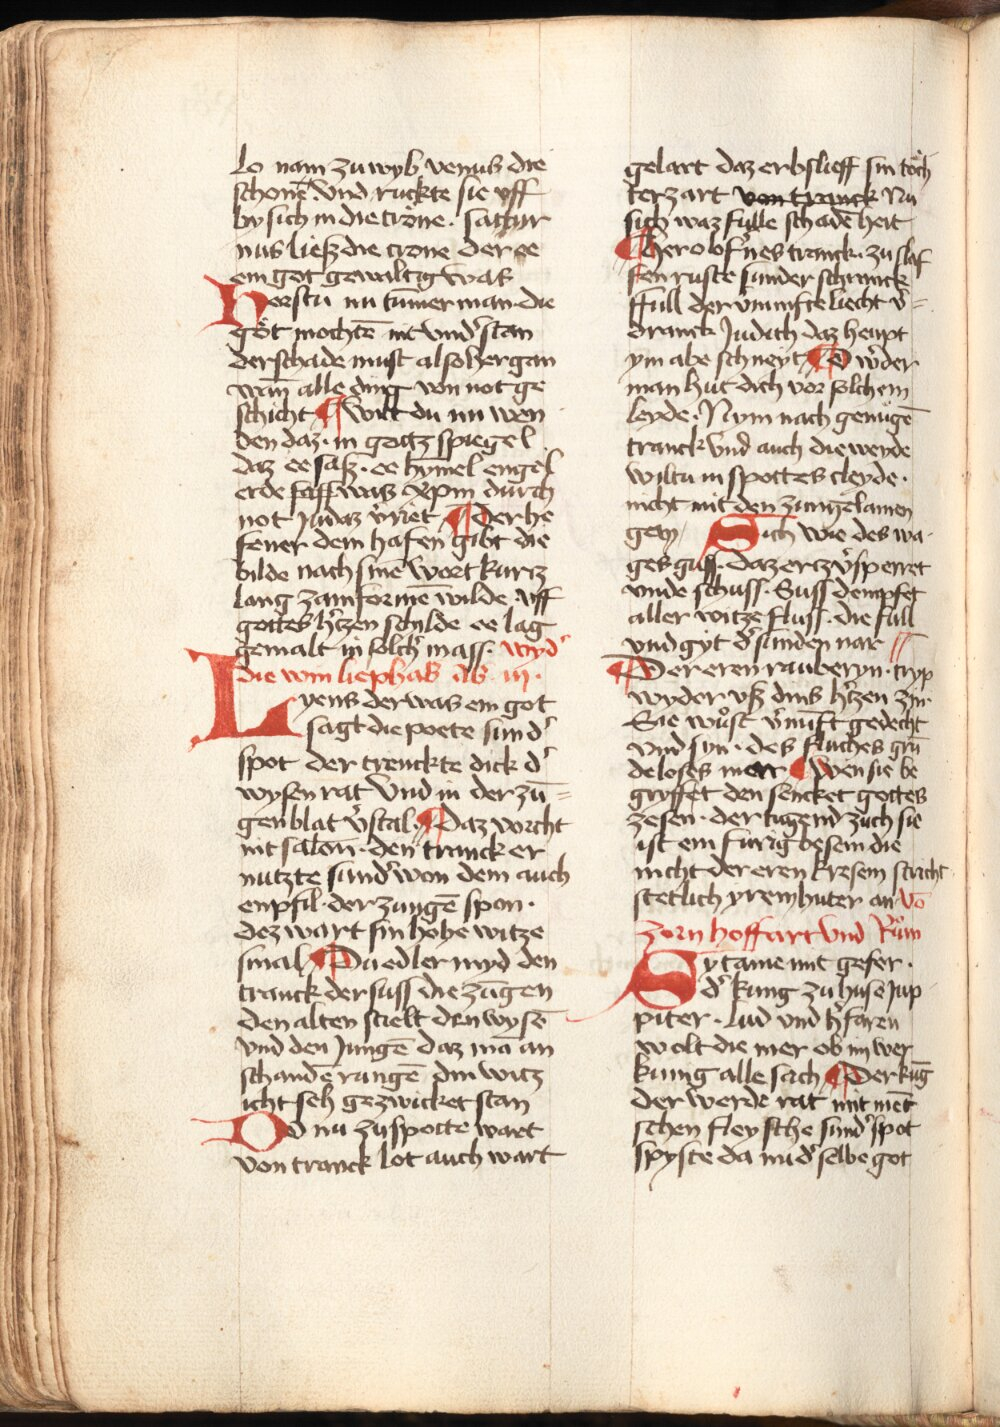 lo nam zu wyb venus die
schonē. vnd ruckte sie vff
by sich in die crone. Satur
nus ließ die crone der ee
ein got gewaltig was
Horstu nu tūmer man die
got mochtē nit vnd'stan
der schade must also hergan
wan̄ alle ding von not ge
schicht ¶ wilt du nu wen
den daz. in gottz spiegel
daz ee saß. ee hymel engel
erde saff was xp̄m durch
not Judaz v'riet ¶ Der he
fener dem hafen gibt die
bilde nach sinē wort kurtz
lang zam formē wilde. vff
gottes h'tzen schilde ee lag
gemalt in solch' mass. wyd'
die win liephab
Lyens der was ein got
sagt die poete sund'
spot der trenckte dick d'
wysen rat vnd in der zū=
gen blat v'stal. ¶ Daz vorcht
nit salom. den tranck er
nutzte sund' won dem auch
enpfil. der zungē span.
dez wart sin hohe witze
smal ¶ Du edler myd den
tranck der suss die zūgen
den alten stielt den wysē
vnd den Jungē daz mā an
schandē rungē din witz
icht seh gezwicket stan
Od nu zu spotte wart
von tranck lot auch wart
gelart daz er bslieff sin toch
ter zart von tranck Nu
sich waz fulle schadē heit
¶ Herolof'nes tranck. zu slaf
fen ruste sunder schranck
ffull der v'nunfte liecht v'=
dranck Judith daz heupt
ym abe schneyt ¶ O w'der
man hut dich vor solchem
leyde. Nym nach genugē
tranck vnd auch die weyde
wiltu in spottes cleyde.
nicht mit den zungelamen
gen / Sich wie des wa-
ges guss. daz ertz v'sperret
vnde schuss. Suss dempfet
aller witze fluss. die full
vnd gyt d' sunden nar
¶ Der eren rauberyn. tryp
wyder vß dins h'tzen zin.
Sie wuost v'nunft gedecht
vnd syn. des fluches grū
deloses merr ¶ wen sie be
gryffet den sencket gottes
zesen. der tugend zuch sie
ist ein furig besem die
nicht der eren kresem stricht
stetlich yrem huter an Vō
zorn hoffart vnd Rum
Sytanie mit gefer.
d' kung zu huse Jup
piter. lud vnd h'faren
wolt die mer ob im wer
kunig alle sach ¶ Der kūg
der werde rat mit mēt
schen fleysche sund' spot
spyste da mid' selbe got